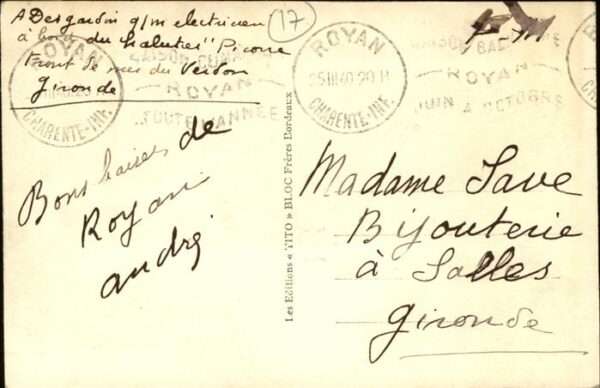 A Desgardin q/m electricien
à bord du chalutier "Picorre
Front de mer du Verdon
Gironde
17
F. M
ROYAN
CHARENTE-INF.
SAISON
ROYAN
TOUTE L'ANNÉE
ROYAN
25 III 40 20 H
CHARENTE-INF.
SAISON BALNÉAIRE
ROYAN
JUIN A OCTOBRE
Bons baisers de
Royan
andré
Les Editions « TITO » BLOC Frères Bordeaux
Madame Save
Bijouterie
à Salles
Gironde